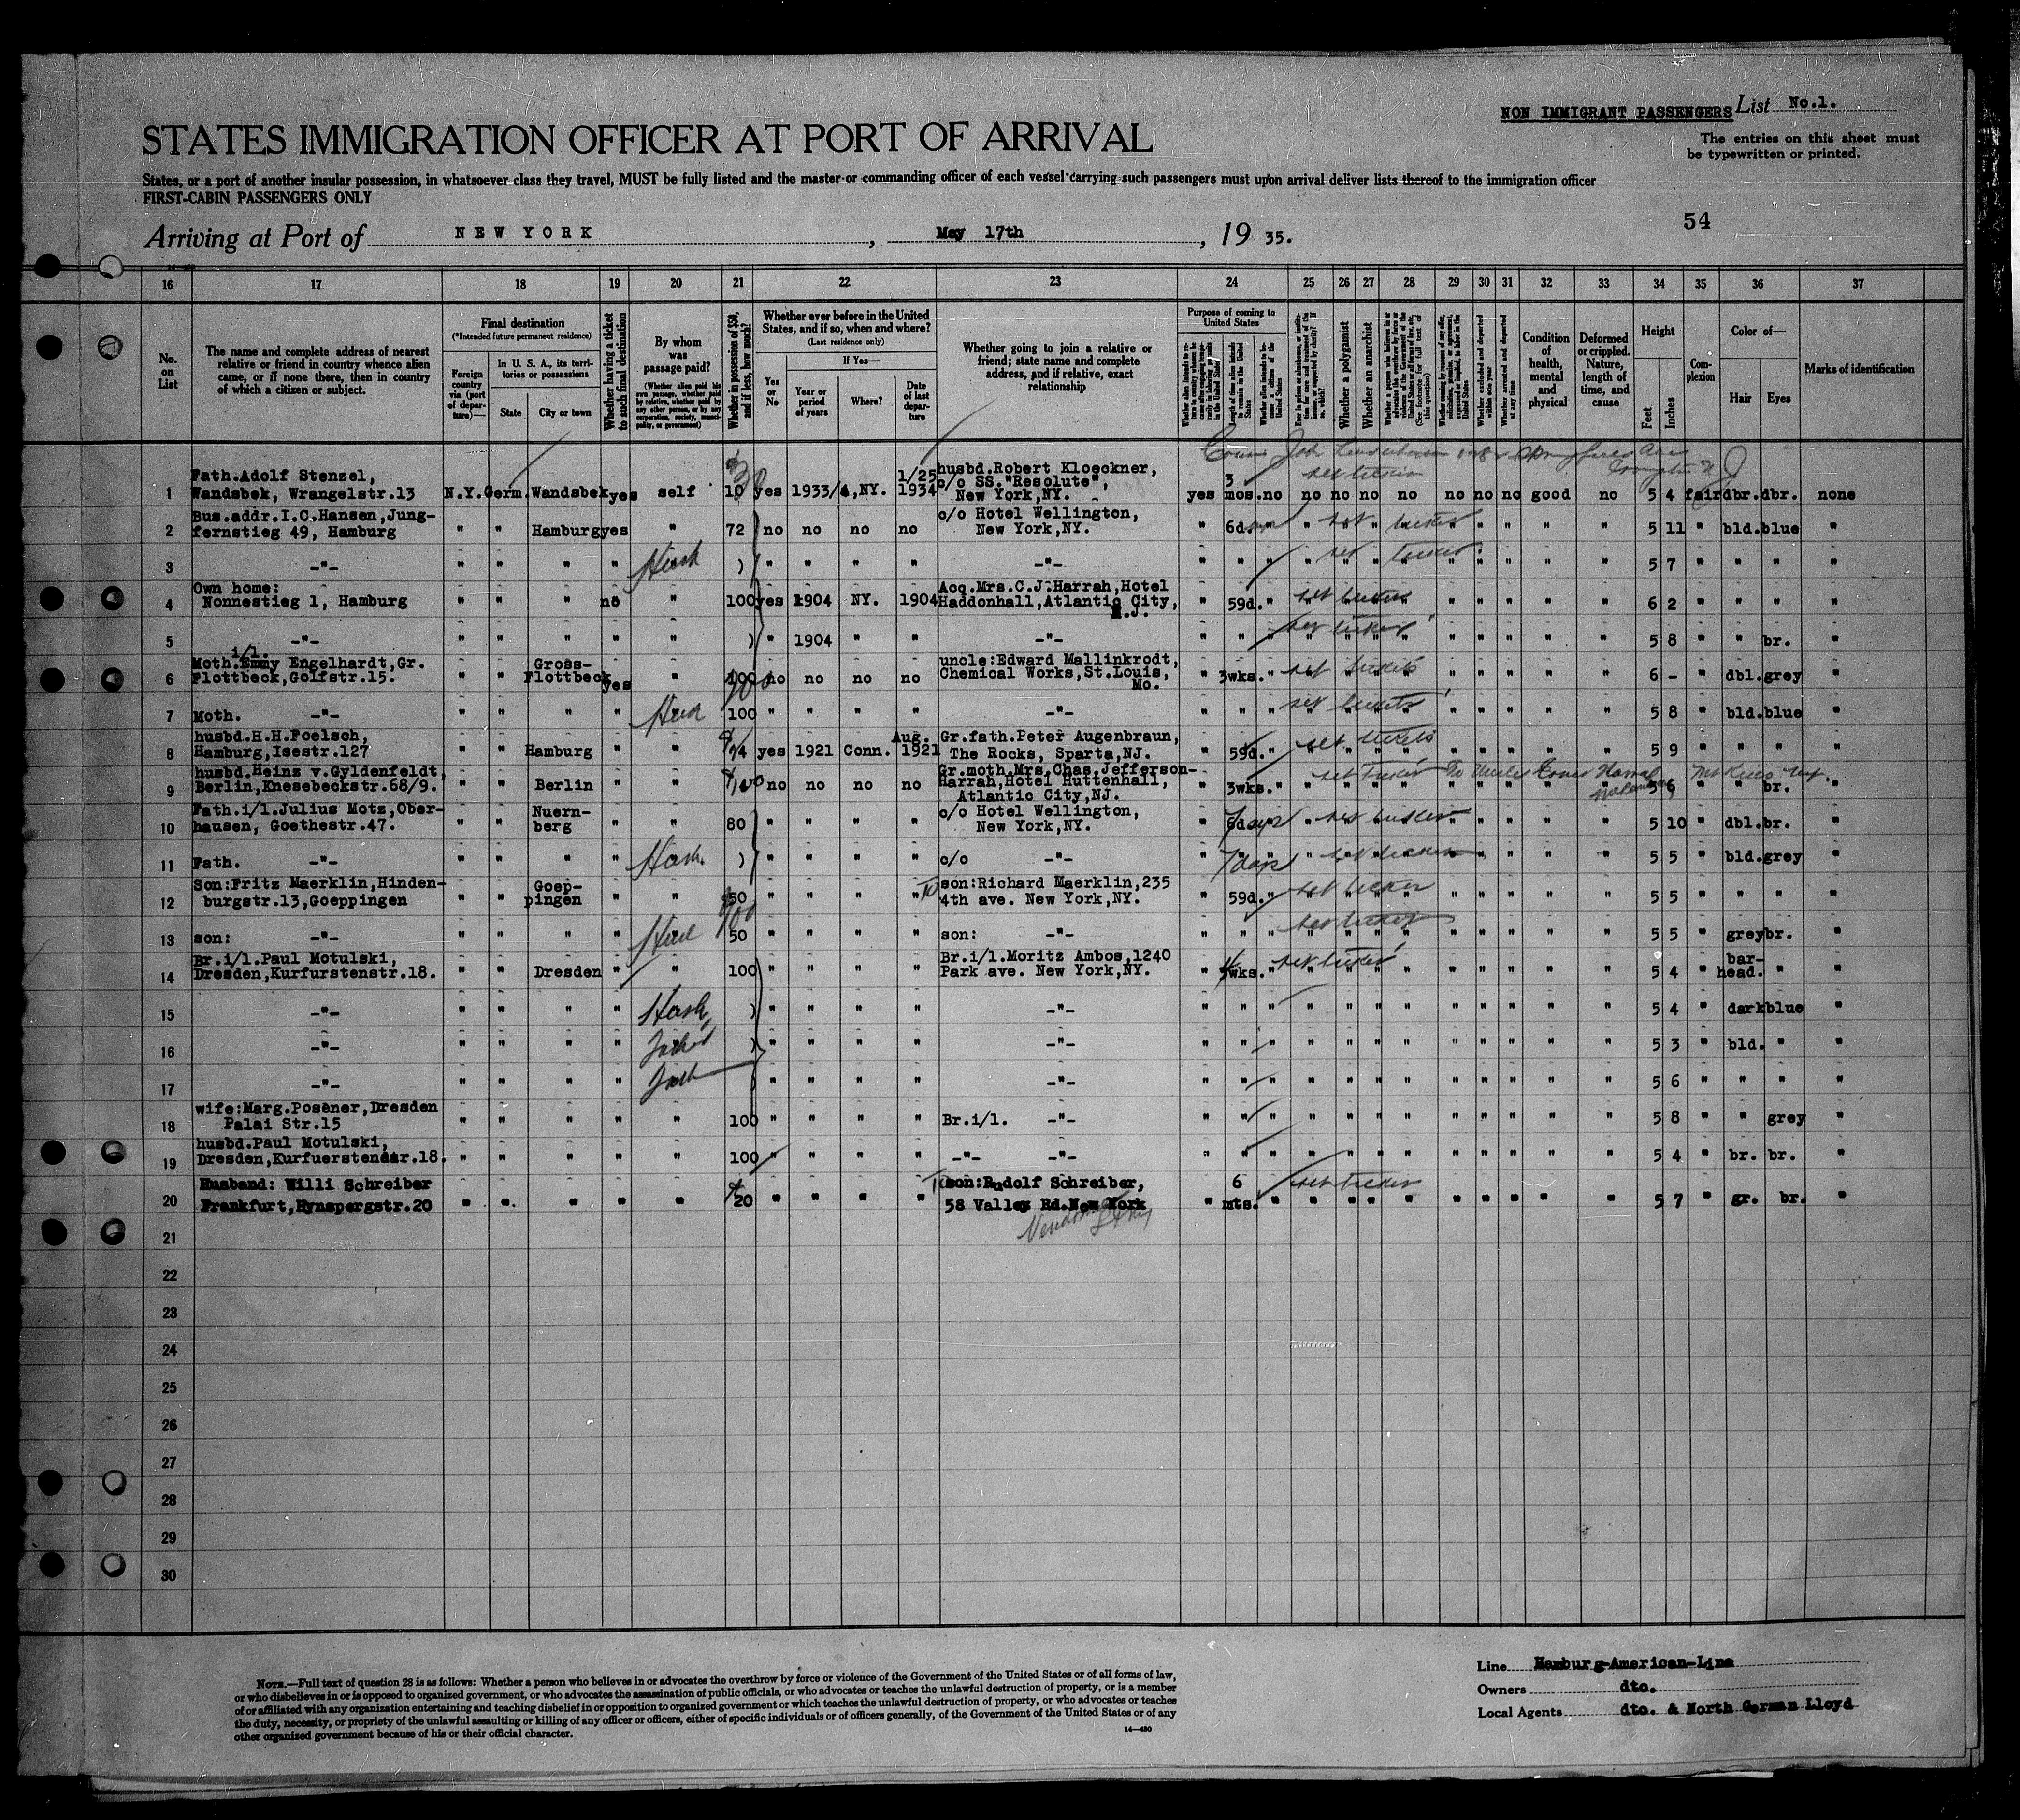 NON IMMIGRANT PASSENGERS List No.1.
STATES IMMIGRATION OFFICER AT PORT OF ARRIVAL
The entries on this sheet must
be typewritten or printed.
States, or a port of another insular possession, in whatsoever class they travel, MUST be fully listed and the master or commanding officer of each vessel carrying such passengers must upon arrival deliver lists thereof to the immigration officer
FIRST-CABIN PASSENGERS ONLY
54
Arriving at Port of NEW YORK, May 17th, 19 35.
16 17 18 19 20 21 22 23 24 25 26 27 28 29 30 31 32 33 34 35 36 37
No. on List
The name and complete address of nearest relative or friend in country whence alien came, or if none there, then in country of which a citizen or subject.
Final destination
(*Intended future permanent residence)
Foreign country via (port of departure)—
In U. S. A., its territories or possessions
State
City or town
Whether having a ticket to such final destination
By whom was passage paid?
(Whether alien paid his own passage, whether paid by relative, whether paid by any other person, or by any corporation, society, municipality, or government)
Whether in possession of $50, and if less, how much?
Whether ever before in the United States, and if so, when and where?
(Last residence only)
Yes or No
If Yes—
Year or period of years
Where?
Date of last departure
Whether going to join a relative or friend; state name and complete address, and if relative, exact relationship
Purpose of coming to United States
Length of time alien intends to remain in the United States
Whether alien intends to become a citizen of the United States
Whether a polygamist
Whether an anarchist
Whether arrested and deported within one year
Whether arrested and deported at any time
Condition of health, mental and physical
Deformed or crippled. Nature, length of time, and cause
Height
Feet
Inches
Complexion
Color of—
Hair
Eyes
Marks of identification
1 Fath.Adolf Stenzel, Wandsbek, Wrangelstr.13 N.Y. Germ. Wandsbek yes self 10 yes 1933/4, NY. 1/25 1934 husbd.Robert Kloeckner, c/o SS."Resolute", New York,NY. yes 3 mos. no no no no no no no no good no 5 4 fair dbr. dbr. none
2 Bus.addr.I.C.Hansen,Jungfernstieg 49, Hamburg " " Hamburg yes " 72 no no no no c/o Hotel Wellington, New York,NY. " 6d. " " " " " " " " " " 5 11 " bld. blue "
3 -"- " " " " " ) " " " " -"- " " " " " " " " " " " " 5 7 " " " "
4 Own home: Nonnestieg 1, Hamburg " " " no " 100 yes 1904 NY. 1904 Acq.Mrs.C.J.Harrah,Hotel Haddonhall,Atlantic City, N.J. " 59d. " " " " " " " " " " 6 2 " " " "
5 -"- " " " " " ) " 1904 " " -"- " " " " " " " " " " " " 5 8 " " br. "
6 Moth.i/l. Emmy Engelhardt,Gr. Flottbeck,Golfstr.15. " " Gross-Flottbeck yes " 100 no no no no uncle:Edward Mallinkrodt, Chemical Works,St.Louis, Mo. " 3wks. " " " " " " " " " " 6 - " dbl. grey "
7 Moth. -"- " " " " " 100 " " " " -"- " " " " " " " " " " " " 5 8 " bld. blue "
8 husbd.H.H.Foelsch, Hamburg,Isestr.127 " " Hamburg " " yes 1921 Conn. Aug. 1921 Gr.fath.Peter Augenbraun, The Rocks, Sparta,NJ. " 59d. " " " " " " " " " " 5 9 " " " "
9 husbd.Heinz v.Gyldenfeldt, Berlin,Knesebeckstr.68/9. " " Berlin " " 100 no no no no Gr.moth.Mrs.Chas.Jefferson-Harrah,Hotel Huttenhall, Atlantic City,NJ. " 3wks. " " " " " " " " " " 5 6 " " br. "
10 Fath.i/l.Julius Motz,Oberhausen, Goethestr.47. " " Nuernberg " " 80 " " " " c/o Hotel Wellington, New York,NY. " 7 days " " " " " " " " " " 5 10 " dbl. br. "
11 Fath. -"- " " " " " ) " " " " c/o -"- " 7 days " " " " " " " " " " 5 5 " bld. grey "
12 Son:Fritz Maerklin,Hindenburgstr.13,Goeppingen " " Goeppingen " " 50 " " " " To son:Richard Maerklin,235 4th ave. New York,NY. " 59d. " " " " " " " " " " 5 5 " " " "
13 son: -"- " " " " " 50 " " " " son: -"- " " " " " " " " " " " " 5 5 " grey br. "
14 Br.i/l.Paul Motulski, Dresden,Kurfurstenstr.18. " " Dresden " " 100 " " " " Br.i/l.Moritz Ambos,1240 Park ave. New York,NY. " 4wks. " " " " " " " " " " 5 4 " bar-head. " "
15 -"- " " " " ) " " " " -"- " " " " " " " " " " " " 5 4 " dark blue "
16 -"- " " " " ) " " " " -"- " " " " " " " " " " " " 5 3 " bld. " "
17 -"- " " " " ) " " " " -"- " " " " " " " " " " " " 5 6 " " " "
18 wife:Marg.Posener,Dresden Palai Str.15 " " " " " 100 " " " " Br.i/l. -"- " " " " " " " " " " " " 5 8 " " grey "
19 husbd.Paul Motulski, Dresden,Kurfuerstenstr.18. " " " " " 100 " " " " -"- -"- " " " " " " " " " " " " 5 4 " br. br. "
20 Husband: Willi Schreiber Frankfurt,Hynspergstr.20 " " " " " 20 " " " " To son:Rudolf Schreiber, 58 Valley Rd.New York " 6 mts. " " " " " " " " " " 5 7 " gr. br. "
21
22
23
24
25
26
27
28
29
30
NOTE.—Full text of question 28 is as follows: Whether a person who believes in or advocates the overthrow by force or violence of the Government of the United States or of all forms of law,
or who disbelieves in or is opposed to organized government, or who advocates the assassination of public officials, or who advocates or teaches the unlawful destruction of property, or is a member
of or affiliated with any organization entertaining and teaching disbelief in or opposition to organized government or which teaches the unlawful destruction of property, or who advocates or teaches
the duty, necessity, or propriety of the unlawful assaulting or killing of any officer or officers, either of specific individuals or of officers generally, of the Government of the United States or of any
other organized government because of his or their official character.
14—480
Line Hamburg-American-Line
Owners dto.
Local Agents dto. & North German Lloyd